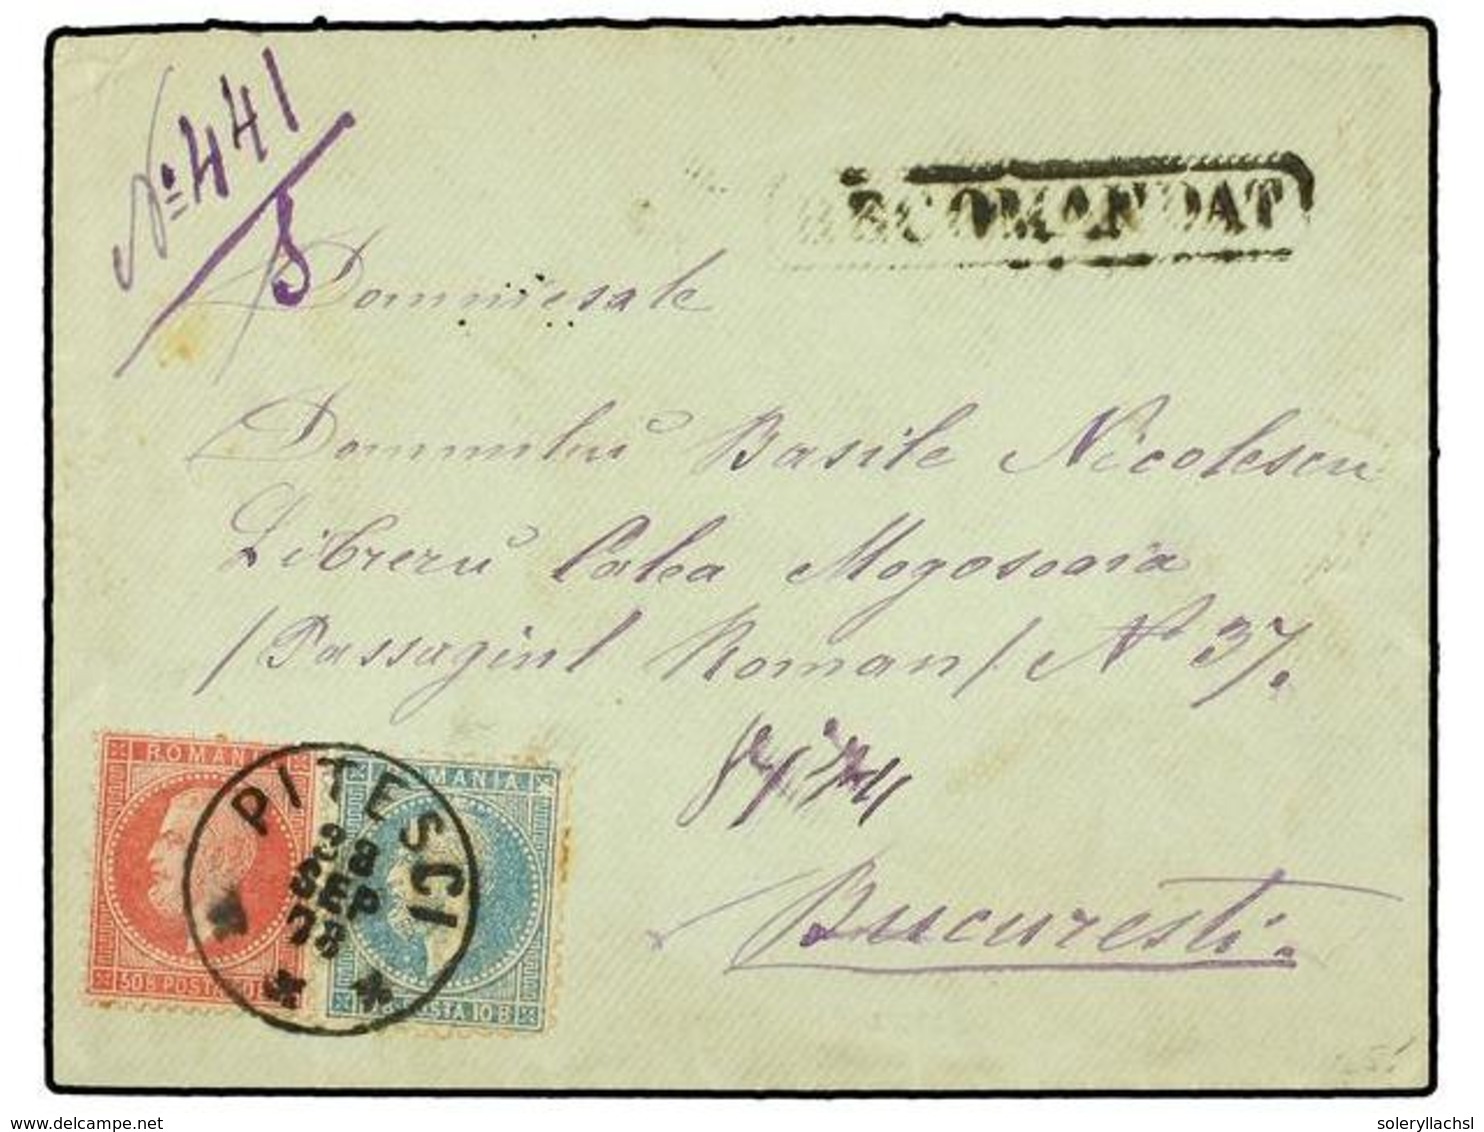 No 441
8
RECOMANDAT
Domniesale
Domnului Basile Nicolescu
Libreru Calea Mogosoaia
/Passagiul Roman/ No 37.
Bucuresti.
ROMANIA
50 B POSTA
ROMANIA
POSTA 10 B
PITESCI
8
SEP
78
soleryllachsl